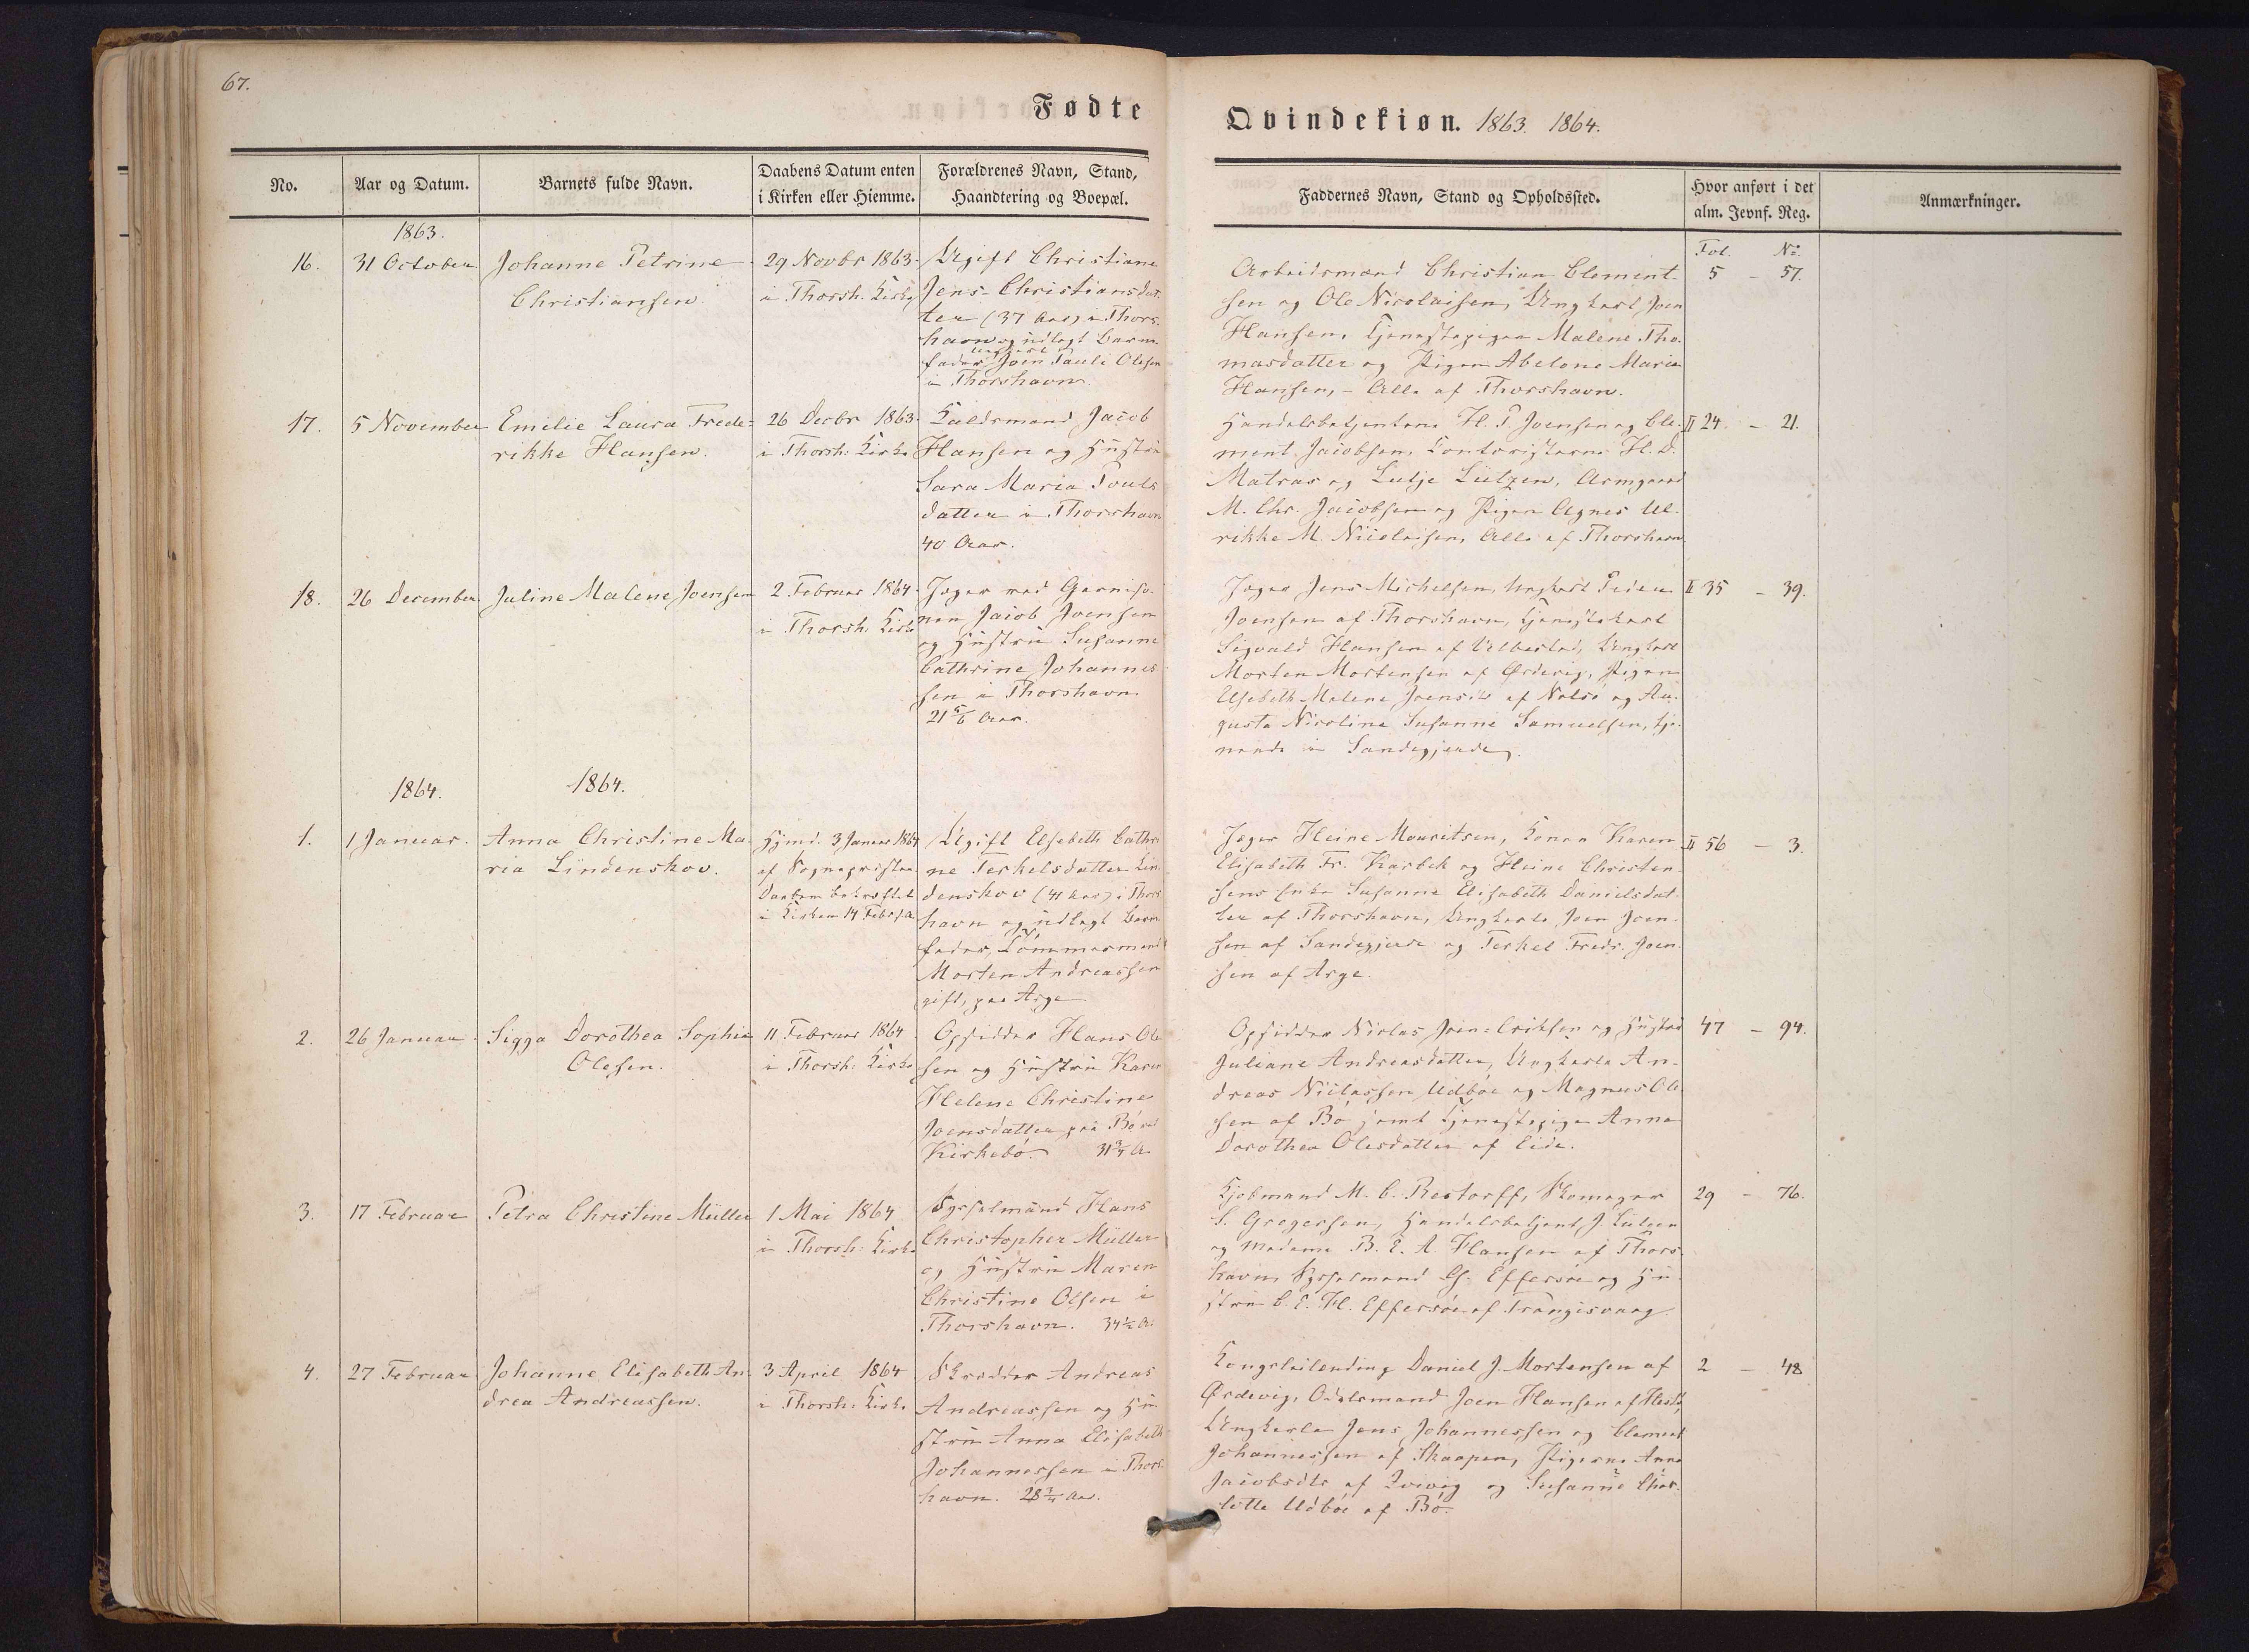 67.
Fødte
Qvindekiøn. 1863. 1864.
No.
Aar og Datum.
Barnets fulde Navn.
Daabens Datum enten
i Kirken eller Hiemme.
Forældrenes Navn, Stand,
Haandtering og Boepæl.
Faddernes Navn, Stand og Opholdssted.
Hvor anført i det
alm. Jevnf. Reg.
Anmærkninger.
Fol. No.
1863.
16.
31 October
Johanne Petrine
Christiansen.
29 Novbr 1863.
i Thorsh. Kirke
Ugift Christiane
Jens-Christiansdat-
ter (37 Aar) i Thors-
havn og udlagt Barne-
fader Ungkarl Joen Pauli Olesen
i Thorshavn.
Arbeidsmænd Christian Clement-
sen og Ole Nicolaisen, Ungkarl Joen
Hansen, Tjenestepigen Malene Tho-
masdatter og Pigen Abelone Maria
Hansen, - Alle af Thorshavn.
5 - 57.
17.
5 November
Emilie Laura Frede-
rikke Hansen.
26 Decbr 1863.
i Thorsh: Kirke
Jacob
Hansen og Hustru
Sara Maria Pouls-
datter i Thorshavn
40 Aar.
Handelsbetjentene H. P. Joensen og Cle-
ment Jacobsen, Contoristerne H. D.
Matras og Lutje Lützen,
M. Chr. Jacobsen og Pigen Agnes Ul-
rikke M. Nicolaisen, Alle af Thorshavn
II 24. - 21.
18.
26 December
Juline Malene Joensen
2 Februar 1864.
i Thorsh: Kirke
Jæger ved Garniso-
nen Jacob Joensen
og Hustru Susanne
Cathrine Johannes-
sen i Thorshavn.
21 5/6 Aar.
Jæger Jens Michelsen, Ungkarl Peder
Joensen af Thorshavn, Tjenestekarl
Sigvald Hansen af Velbestad, Ungkarl
Morten Mortensen af Ørdevig, Pigen
Elsebeth Malene Joensdr af Nolsø og Au-
gusta Nicoline Susanne Samuelsen, tje-
nende i Sandegjerde.
II 35 - 39.
1864.
1864.
1.
1 Januar.
Anna Christine Ma-
ria Lindenskov.
Hjemd. 3 Januar 1864
af Sognepræsten
Daaben bekræftet
i Kirken 14 Febr. s. A.
Ugift Elsebeth Cathri-
ne Terkelsdatter Lin-
denskov (41 Aar) i Thors-
havn og udlagt Barne-
fader, Tømmermand
Morten Andreassen
gift, paa Arge
Jæger Heine Mouritsen, Konen Karen
Elisabeth Fr. Karbek og Heine Christen-
sens Enke Susanne Elisabeth Danielsdat-
ter af Thorshavn, Ungkarle Joen Joen-
sen af Sandegjerde og Terkel Fredr. Joen-
sen af Arge.
II 56 - 3.
2.
26 Januar
Sigga Dorothea Sophie
Olesen.
11 Februar 1864
i Thorsh: Kirke
Opsidder Hans Ole-
sen og Hustru Karen
Helene Christine
Joensdatter paa Bø ved
Kirkebø. 31 3/4 A.
Opsidder Niclas Joen-Eriksen og Hustru
Juliane Andreasdatter, Ungkarle An-
dreas Niclassen Udbøe og Magnus Ole-
sen af Bø samt Tjenestepige Anna
Dorothea Olesdatter af Eide.
47 - 94.
3.
17 Februar
Petra Christine Müller
1 Mai 1864
i Thorsh: Kirke
Sysselmand Hans
Christopher Müller
og Hustru Maren
Christine Olsen i
Thorshavn. 34 1/2 A.
Kjøbmand M. C. Restorff, Skomager
S. Gregersen, Handelsbetjent J. Lützen
og Madame B. E. A Hansen af Thors-
havn, Sysselmand G. Effersøe og Hu-
stru C. E. H. Effersøe af Trangisvaag.
29 - 76.
4.
27 Februar
Johanne Elisabeth An-
drea Andreassen.
3 April 1864
i Thorsh: Kirke
Skrædder Andreas
Andreassen og Hu-
stru Anna Elisabeth
Johannessen i Thors-
havn. 28 3/4 Aar.
Kongsleilending Daniel J. Mortensen af
Ørdevig, Odelsmand Joen Hansen af Hestø,
Ungkarle Jens Johannessen og Clement
Johannessen af Skaapen, Pigerne Anna
Jacobsdtr af Qvivig og Susanne Char-
lotte Udbøe af Bø.
2 - 48